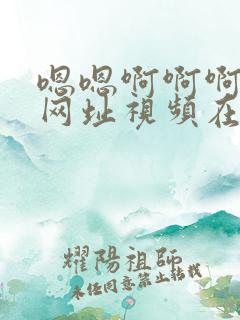 嗯嗯啊啊啊
网址视频在
耀陽祖師
未任同意禁止转载